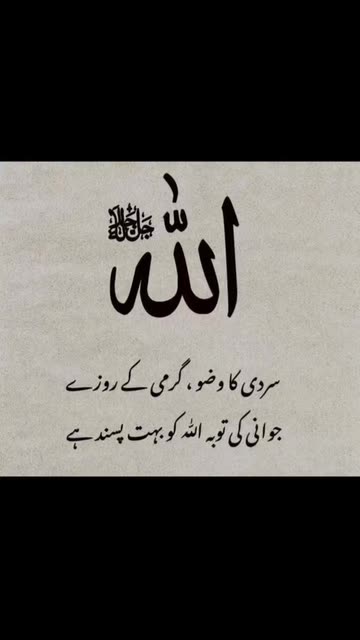 الله جل جلاله
سردی کا وضو ، گرمی کے روزے
جوانی کی توبہ اللہ کو بہت پسند ہے